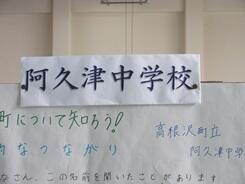 阿久津中学校
町について知ろう!
高根沢町立
阿久津中学
なつながり
なさん、この名前を聞いたことがあります